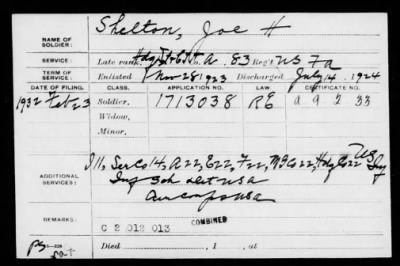 NAME OF SOLDIER: Shelton, Joe H
SERVICE: Late rank, Hdq. Det & C. Tn A. 83 Reg't US Fa
TERM OF SERVICE: Enlisted Nov 28 1923 Discharged July 14, 1924
DATE OF FILING. CLASS. APPLICATION NO. LAW. CERTIFICATE NO.
1932 Feb 23 Soldier. 1713038 RE a 9 2 33
Widow,
Minor,
ADDITIONAL SERVICES: I 11, Ser Co 14, A 22, E 22, F 22, M G Co 22, Hdq Co 22 US Inf
Inf Sch det USA
Air Corps USA
REMARKS: COMBINED
C 2 012 013
Died , 1 , at